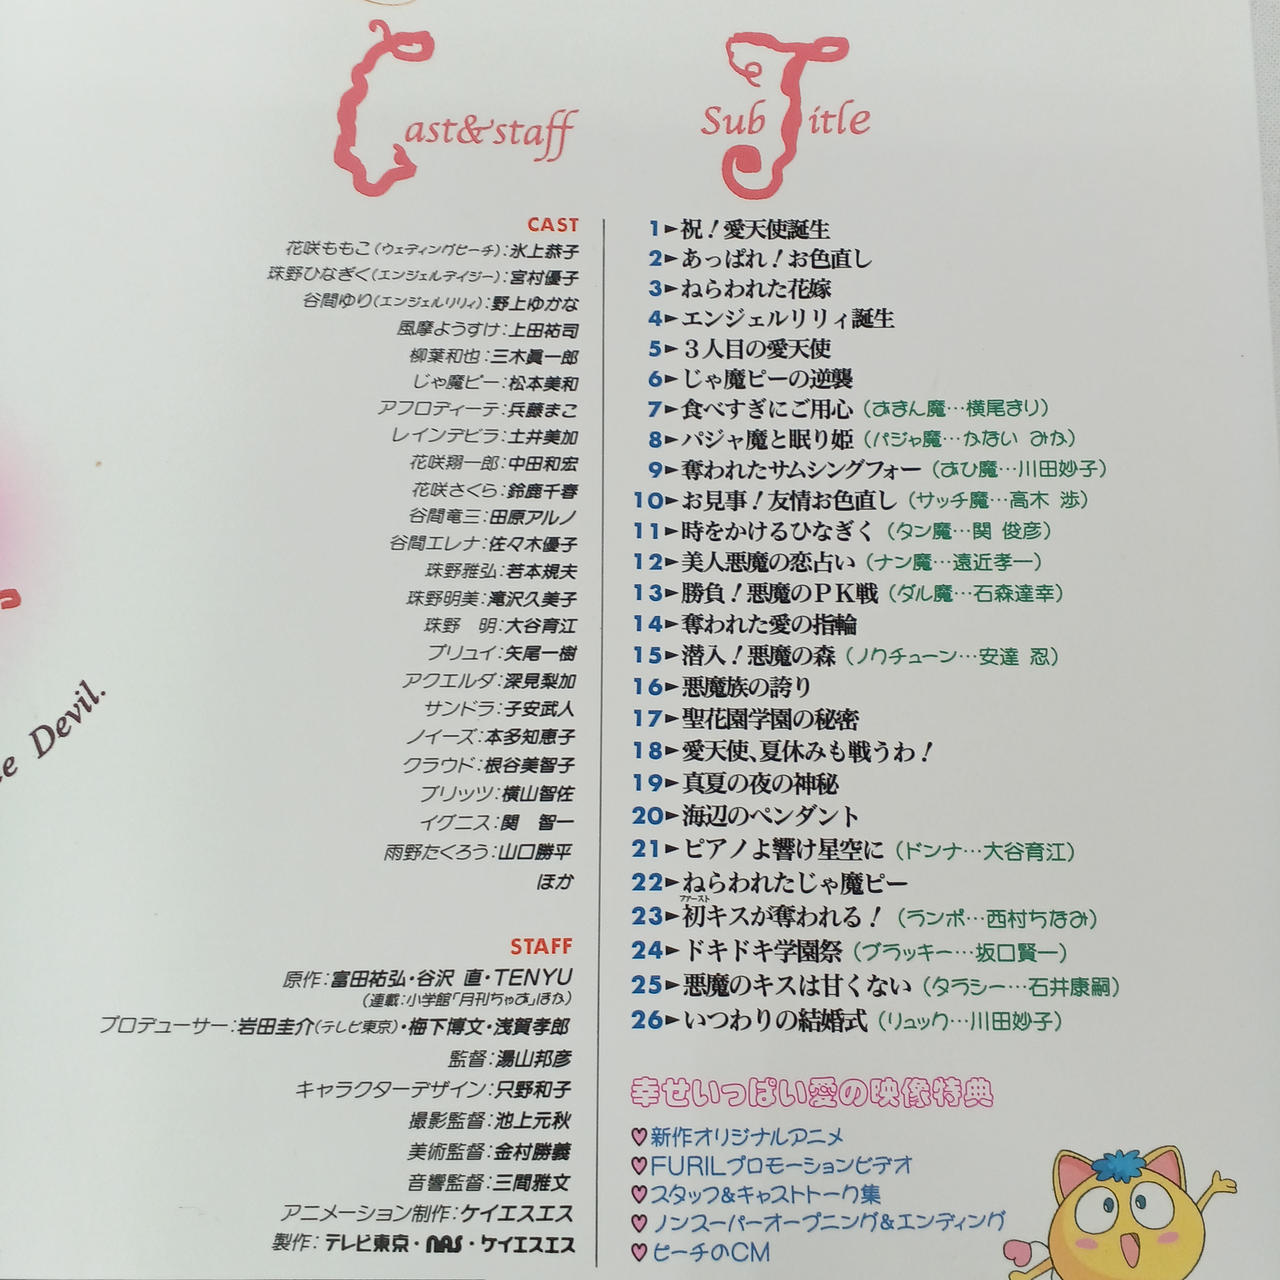 Cast&staff
CAST
花咲ももこ(ウェディングピーチ):氷上恭子
珠野ひなぎく(エンジェルデイジー):宮村優子
谷間ゆり(エンジェルリリィ):野上ゆかな
風摩ようすけ:上田祐司
柳葉和也:三木眞一郎
じゃ魔ピー:松本美和
アフロディーテ:兵藤まこ
レインデビラ:土井美加
花咲翔一郎:中田和宏
花咲さくら:鈴鹿千春
谷間竜三:田原アルノ
谷間エレナ:佐々木優子
珠野雅弘:若本規夫
珠野明美:滝沢久美子
珠野　明:大谷育江
プリュイ:矢尾一樹
アクエルダ:深見梨加
サンドラ:子安武人
ノイーズ:本多知恵子
クラウド:根谷美智子
ブリッツ:横山智佐
イグニス:関　智一
雨野たくろう:山口勝平
ほか
STAFF
原作:富田祐弘・谷沢 直・TENYU
(連載:小学館「月刊ちゃお」ほか)
プロデューサー:岩田圭介(テレビ東京)・梅下博文・浅賀孝郎
監督:湯山邦彦
キャラクターデザイン:只野和子
撮影監督:池上元秋
美術監督:金村勝義
音響監督:三間雅文
アニメーション制作:ケイエスエス
製作:テレビ東京・NAS・ケイエスエス
Sub Title
1►祝！愛天使誕生
2►あっぱれ！お色直し
3►ねらわれた花嫁
4►エンジェルリリィ誕生
5►３人目の愛天使
6►じゃ魔ピーの逆襲
7►食べすぎにご用心（おまん魔…横尾まり）
8►パジャ魔と眠り姫（パジャ魔…かない みか）
9►奪われたサムシングフォー（おひ魔…川田妙子）
10►お見事！友情お色直し（サッチ魔…高木 渉）
11►時をかけるひなぎく（タン魔…関 俊彦）
12►美人悪魔の恋占い（ナン魔…遠近孝一）
13►勝負！悪魔のＰＫ戦（ダル魔…石森達幸）
14►奪われた愛の指輪
15►潜入！悪魔の森（ノクチューン…安達 忍）
16►悪魔族の誇り
17►聖花園学園の秘密
18►愛天使、夏休みも戦うわ！
19►真夏の夜の神秘
20►海辺のペンダント
21►ピアノよ響け星空に（ドンナ…大谷育江）
22►ねらわれたじゃ魔ピー
ファースト
23►初キスが奪われる！（ランポ…西村ちなみ）
24►ドキドキ学園祭（ブラッキー…坂口賢一）
25►悪魔のキスは甘くない（タラシー…石井康嗣）
26►いつわりの結婚式（リュック…川田妙子）
幸せいっぱい愛の映像特典
♥新作オリジナルアニメ
♥FURILプロモーションビデオ
♥スタッフ&キャストトーク集
♥ノンスーパーオープニング&エンディング
♥ピーチのCM
e Devil.